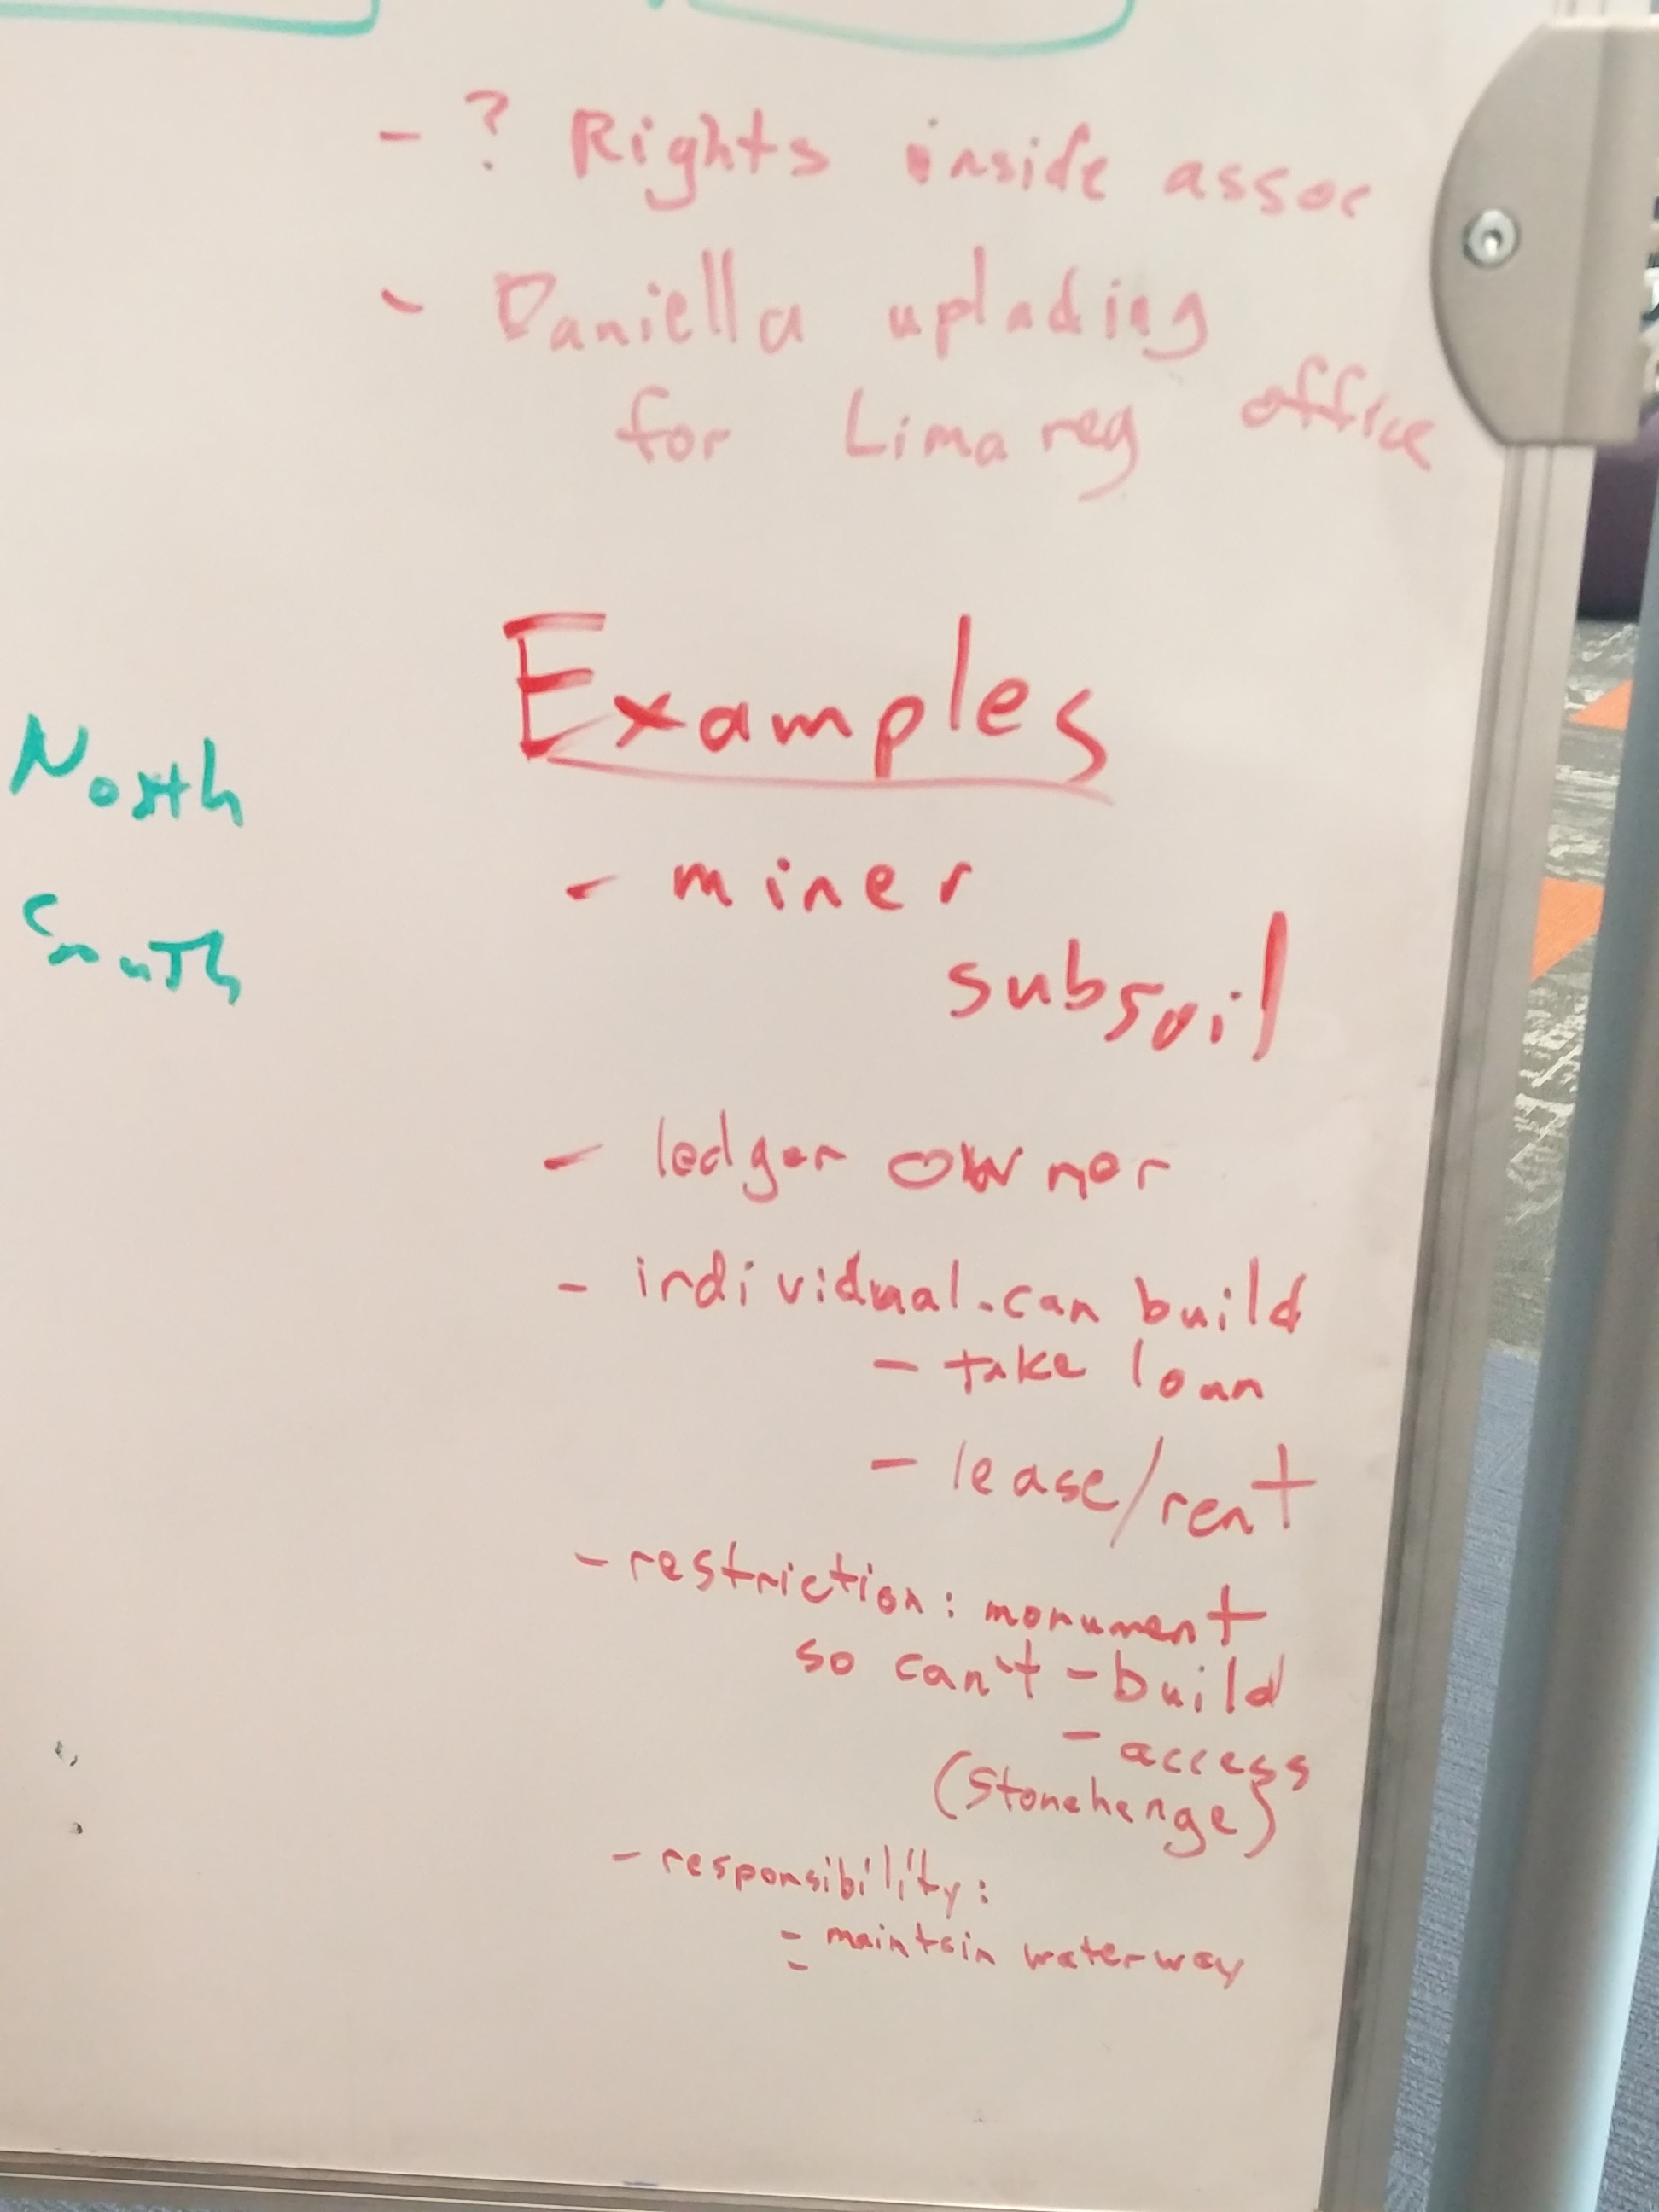 - ? Rights inside assoc
- Daniella uplading
for Lima reg office
Examples
- miner
subsoil
North
South
- ledger owner
- individual - can build
- take loan
- lease/rent
- restriction: monument
so can't - build
- access
(Stonehenge)
- responsibility:
- maintain waterway
-